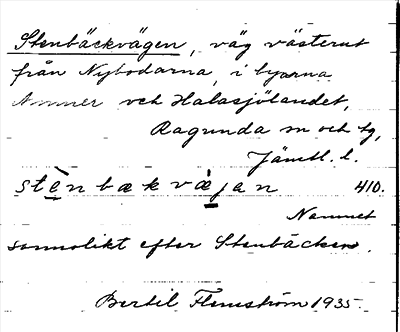 Stenbäckvägen, väg västerut
från Nybodarna, i byarna
Ammer och Halasjölandet,
Ragunda sn och tg,
Jämtl. l.
stènbækvæ̀jan 410.
Namnet
sannolikt efter Stenbäcken.
Bertil Flemström 1935.